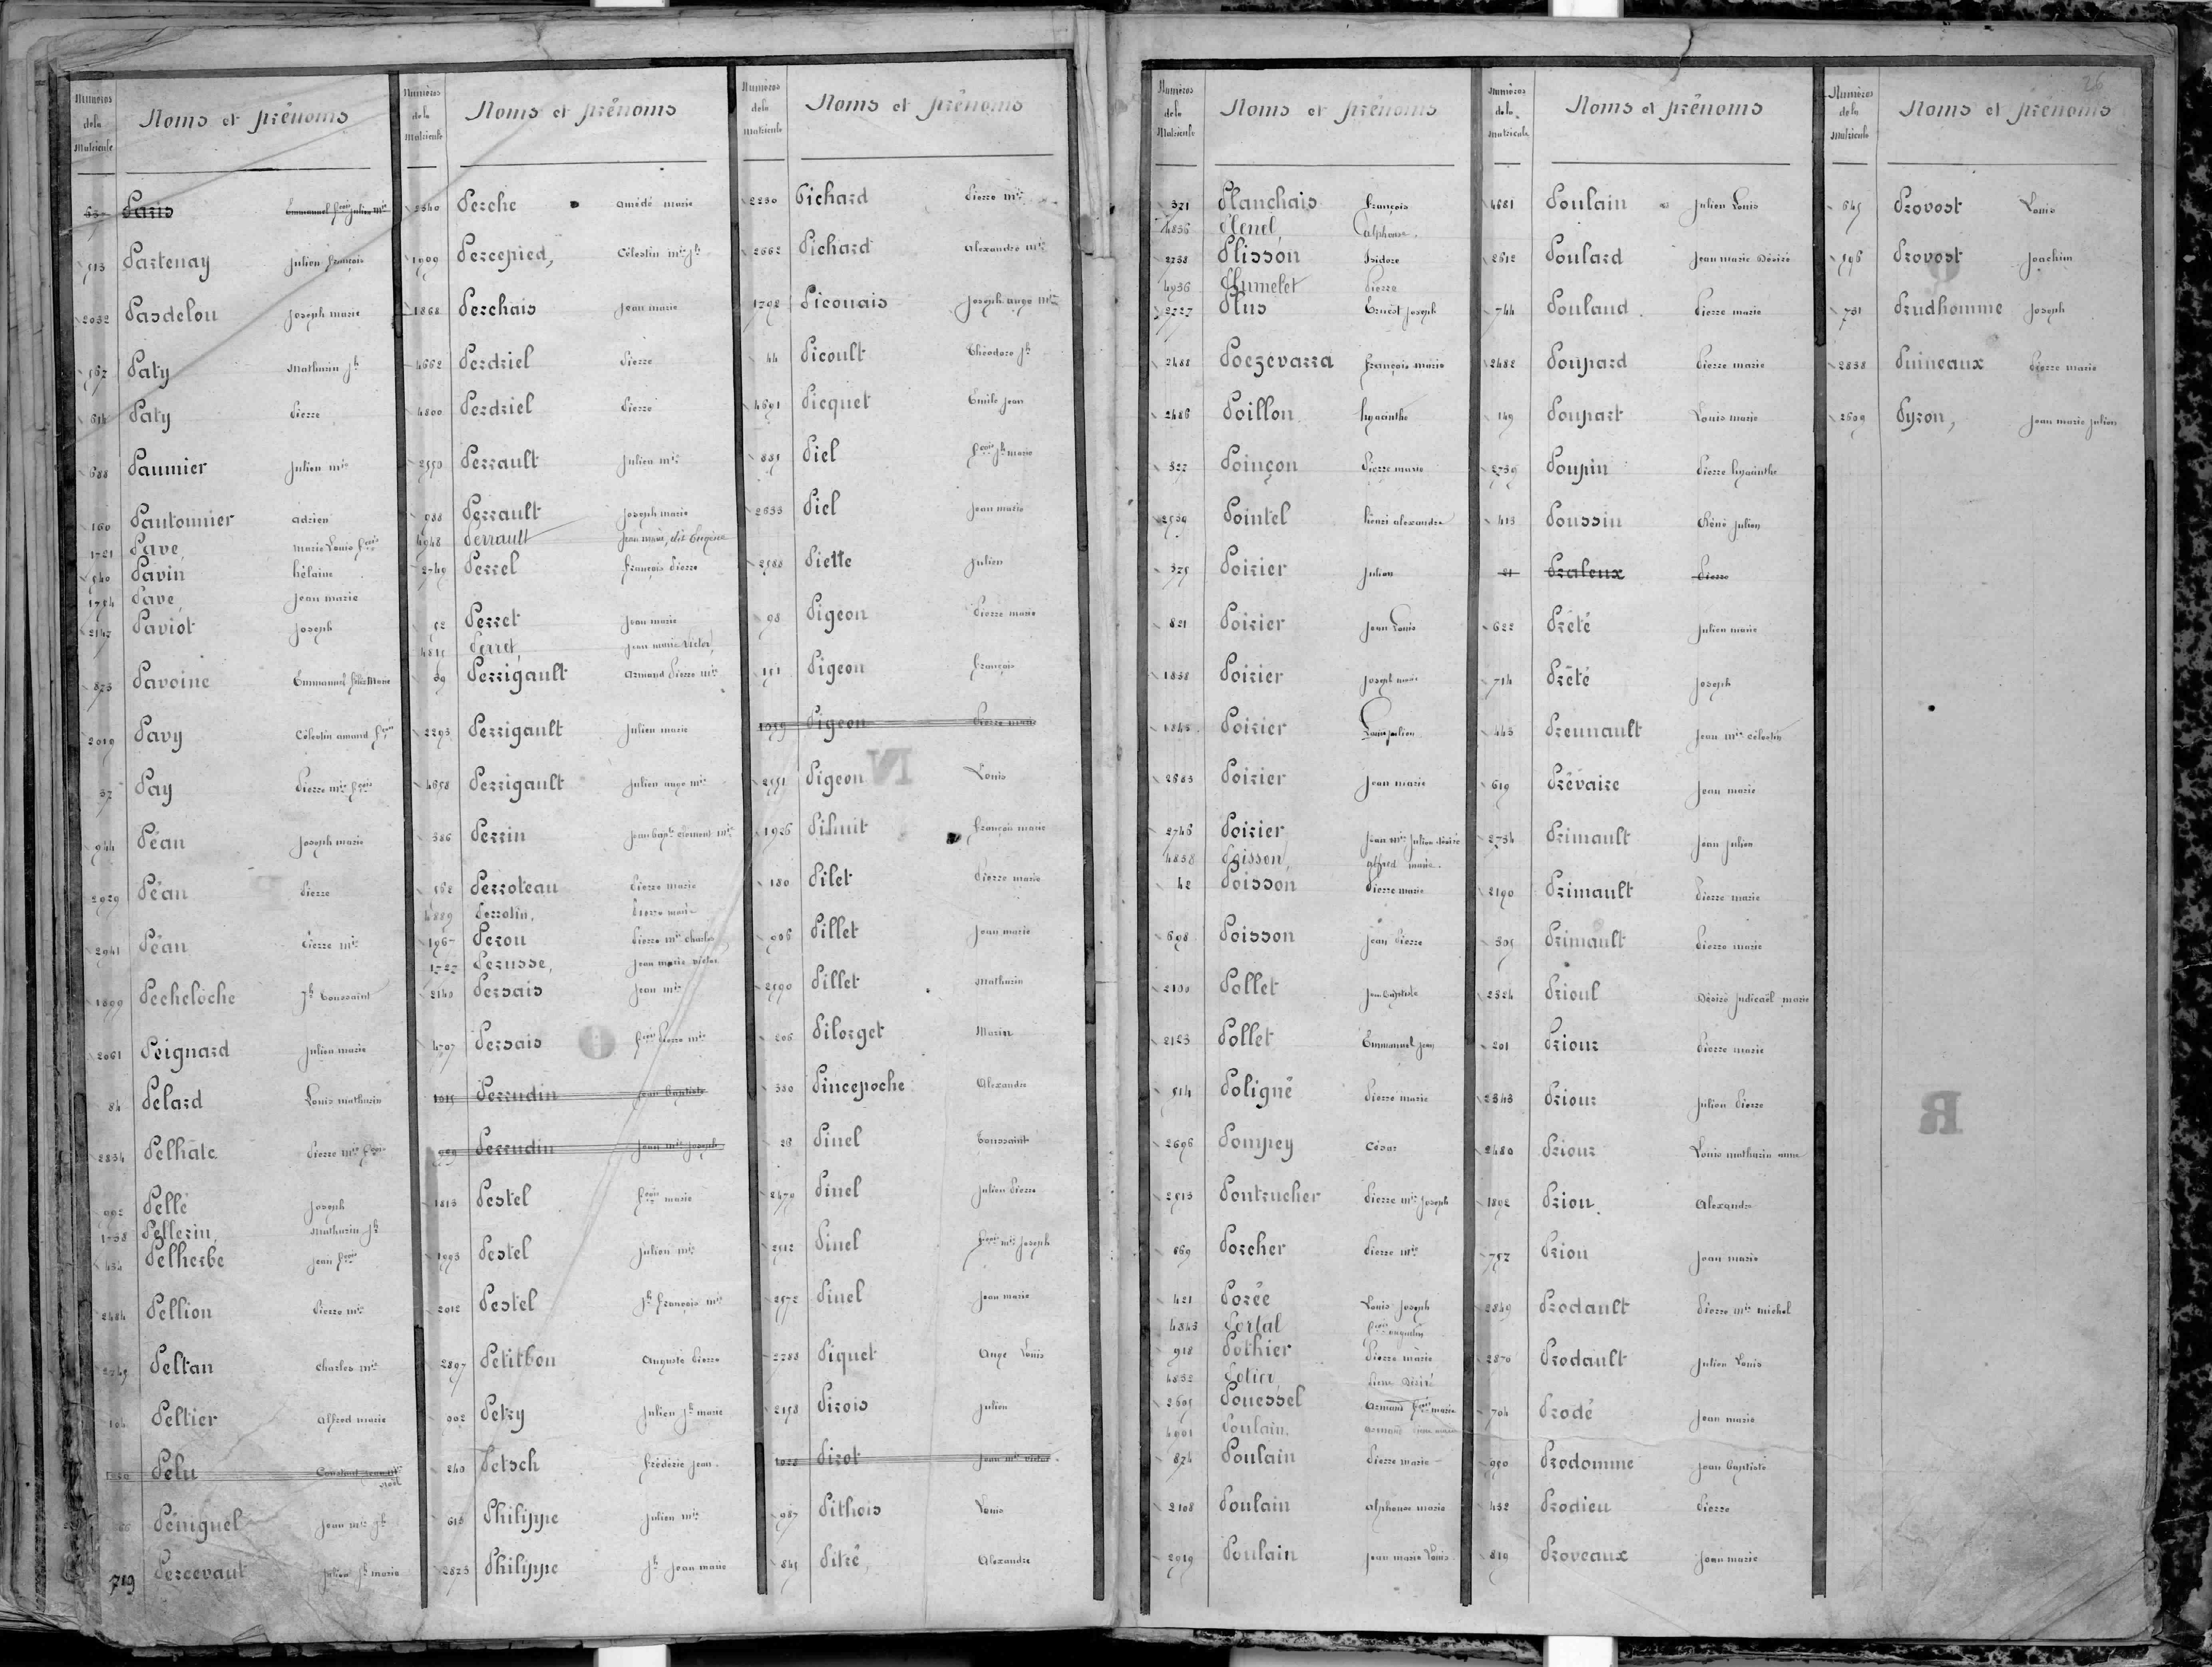 Numéros de la Matricule Noms et prénoms
Paris Emmanuel Fçois Julien Mie
513 Partenay Julien François
2032 Pasdelou Joseph marie
567 Paty Mathurin Jh
614 Paty Pierre
688 Paumier Julien mie
160 Pautonnier adrien
1721 Pavé, Marie Louis Fçois
540 Pavin hélaine
1754 Pavé, Jean marie
2147 Paviot Joseph
873 Pavoine Emmanuel félix Marie
2019 Pavy Célestin amand Fçois
37 Pay Pierre mie Fçois
944 Péan Joseph marie
2929 Péan Pierre
2941 Péan Pierre mie
1899 Pecheloche Jh Toussaint
2061 Peignard Julien marie
84 Pelard Louis mathurin
2834 Pelhate Pierre mie Fçois
992 Pellé Joseph
1738 Pellerin, Mathurin Jh
434 Pelherbe Jean Fçois
2484 Pellion Pierre mie
2749 Peltan Charles mie
104 Peltier Alfred marie
Pelu Constant
66 Péniguel Jean mie Jh
719 Percevaut Julien Jh marie
Numéros de la Matricule Noms et prénoms
2340 Perche Amédé marie
1909 Percepied, Célestin mie Jh
1868 Perchais Jean marie
4662 Perdriel Pierre
4800 Perdriel Pierre
2550 Perrault Julien mie
988 Perrault Joseph marie
4948 Perrault Jean marie, dit Eugène
2749 Perrel François Pierre
52 Perret Jean marie
4815 Perret, Jean marie Victor
59 Perrigault Armand Pierre mie
2293 Perrigault Julien marie
4658 Perrigault Julien ange mie
386 Perrin Jean Bapte Clément mie
562 Perroteau Pierre marie
4889 Perrotin, Pierre marie
1967 Perou Pierre mie Charles
1727 Perusse, Jean marie victor
2140 Persais Jean mie
4707 Persais Fçois Pierre mie
1015 Perrudin Jean Baptiste
959 Perrudin Jean mie Joseph
1813 Pestel Fçois marie
1993 Pestel Julien mie
2012 Pestel Jh François mie
2897 Petitbon Auguste Pierre
902 Petry Julien Jh marie
240 Petsch Frédéric Jean
613 Philippe Julien mie
2823 Philippe Jh Jean marie
Numéros de la Matricule Noms et prénoms
2230 Pichard Pierre mie
2662 Pichard Alexandre mie
1792 Picouais Joseph ange mie
44 Picoult Théodore Jh
4691 Picquet Emile Jean
851 Piel Fçois Jh marie
2633 Piel Jean marie
2588 Piette Julien
98 Pigeon Pierre marie
151 Pigeon François
1059 Pigeon Pierre marie
2551 Pigeon Louis
1926 Pihuit François marie
180 Pilet Pierre marie
906 Pillet Jean marie
2590 Pillet Mathurin
206 Pilorget Marin
380 Pincepoche Alexandre
26 Pinel Toussaint
2479 Pinel Julien Pierre
2512 Pinel Fçois mie Joseph
2572 Pinel Jean marie
2288 Piquet Ange Louis
2158 Pirois Julien
1022 Pirot Jean mie Victor
987 Pithois Louis
845 Pitré, Alexandre
26
Numéros de la Matricule Noms et prénoms
371 Planchais François
4836 Plenel, Alphonse.
2238 Plisson Isidore
4936 Plumelet Pierre
2727 Plus Ernest Joseph
2488 Poezevarra François marie
2486 Poillon hyacinthe
522 Poinçon Pierre marie
2539 Pointel henri alexandre
325 Poirier Julien
821 Poirier Jean Louis
1838 Poirier Joseph marie
1845 Poirier Louis Julien
2883 Poirier Jean marie
2746 Poirier Jean mie Julien désiré
4838 Poisson, Alfred marie.
42 Poisson Pierre marie
698 Poisson Jean Pierre
2100 Pollet Jean Baptiste
2123 Pollet Emmanuel Jean
514 Poligné Pierre marie
2696 Pompey César
2513 Pontrucher Pierre mie Joseph
869 Porcher Pierre mie
421 Porée Louis Joseph
4843 Portal Fçois augustin
918 Pothier Pierre marie
4832 Potier Pierre Désiré
2605 Pouessel Armand Fçois marie
4901 Poulain. Armand
874 Poulain Pierre marie
2108 Poulain Alphonse marie
2919 Poulain Jean marie Louis
Numéros de la Matricule Noms et prénoms
4681 Poulain Julien Louis
2612 Poulard Jean marie Désiré
744 Pouland Pierre marie
2482 Poupard Pierre marie
149 Poupart Louis marie
2739 Poupin Pierre hyacinthe
413 Poussin Réné Julien
21 Praleux Pierre
622 Prêté Julien marie
714 Prêté Joseph
443 Preunault Jean mie célestin
619 Prévaire Jean marie
2734 Primault Jean Julien
2190 Primault Pierre marie
305 Primault Pierre marie
2324 Prioul Désiré Judicaël marie
201 Priour Pierre marie
2343 Priour Julien Pierre
2480 Priour Louis mathurin anne
1892 Priou. Alexandre
752 Priou Jean marie
2849 Prodault Pierre mie michel
2870 Prodault Julien Louis
704 Prodé Jean marie
950 Prodomme Jean Baptiste
452 Prodieu Pierre
819 Proveaux Jean marie
Numéros de la Matricule Noms et prénoms
645 Provost Louis
196 Provost Joachim
731 Prudhomme Joseph
2838 Puineaux Pierre marie
2609 Pyron, Jean marie Julien